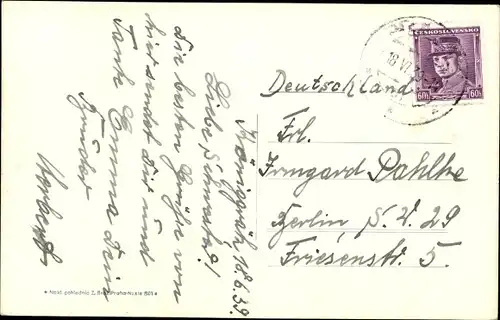 Königgrätz 18.6.39.
Liebe Schwester!
Die besten Grüße von
hier sendet Dir und
Tante Emma Dein
Bruder
Herbert
Deutschland
Frl.
Irmgard Pahlke
Berlin, S.W. 29
Friesenstr. 5.
ČESKOSLOVENSKO
60h 60h
18 VI
Nakl. pohlednic Z.